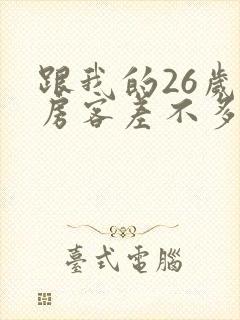 跟我的26歲
房客差不多
臺式電腦